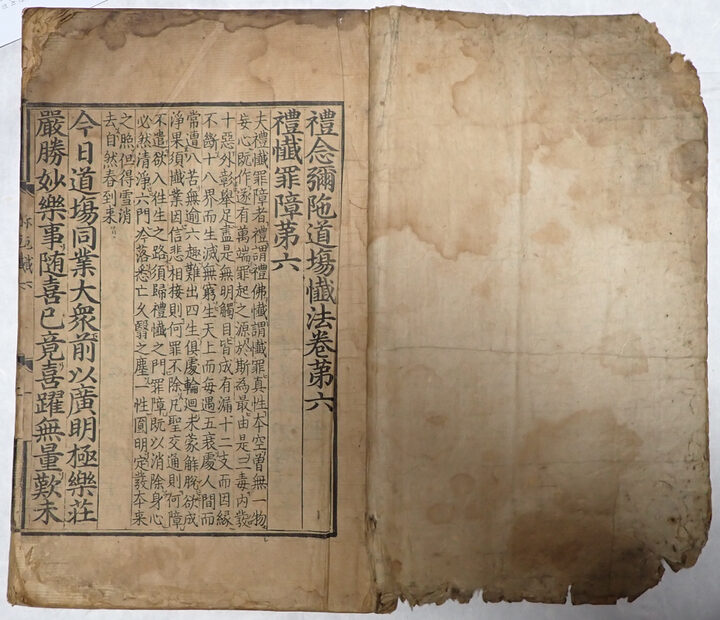 禮念彌陁道場懴法卷苐六
禮懴罪障苐六
夫禮懴罪障者禮謂禮佛懴謂懴罪真性本空曽無一物
妄心旣作遂有萬端罪起之源於斯為最由是三毒内發
十惡外彰舉足盡是無明觸目皆成有漏十二支而因緣
不斷十八界而生滅無窮生天上而每遇五衰處人間而
常遭八苦無逾六趣難出四生俱處輪迴未蒙解脫欲成
淨果須懴業因信悲相接則何罪不除凡聖交通則何障
不遣欲入往生之路須歸禮懴之門罪障旣以消除身心
必然清淨六門落悉亡久翳之塵一性圎明定發本来
之照但得雪消
去自然春到来
今日道場同業大衆前以廣明極樂莊
嚴勝妙樂事随喜已竟喜躍無量歎未
懴六